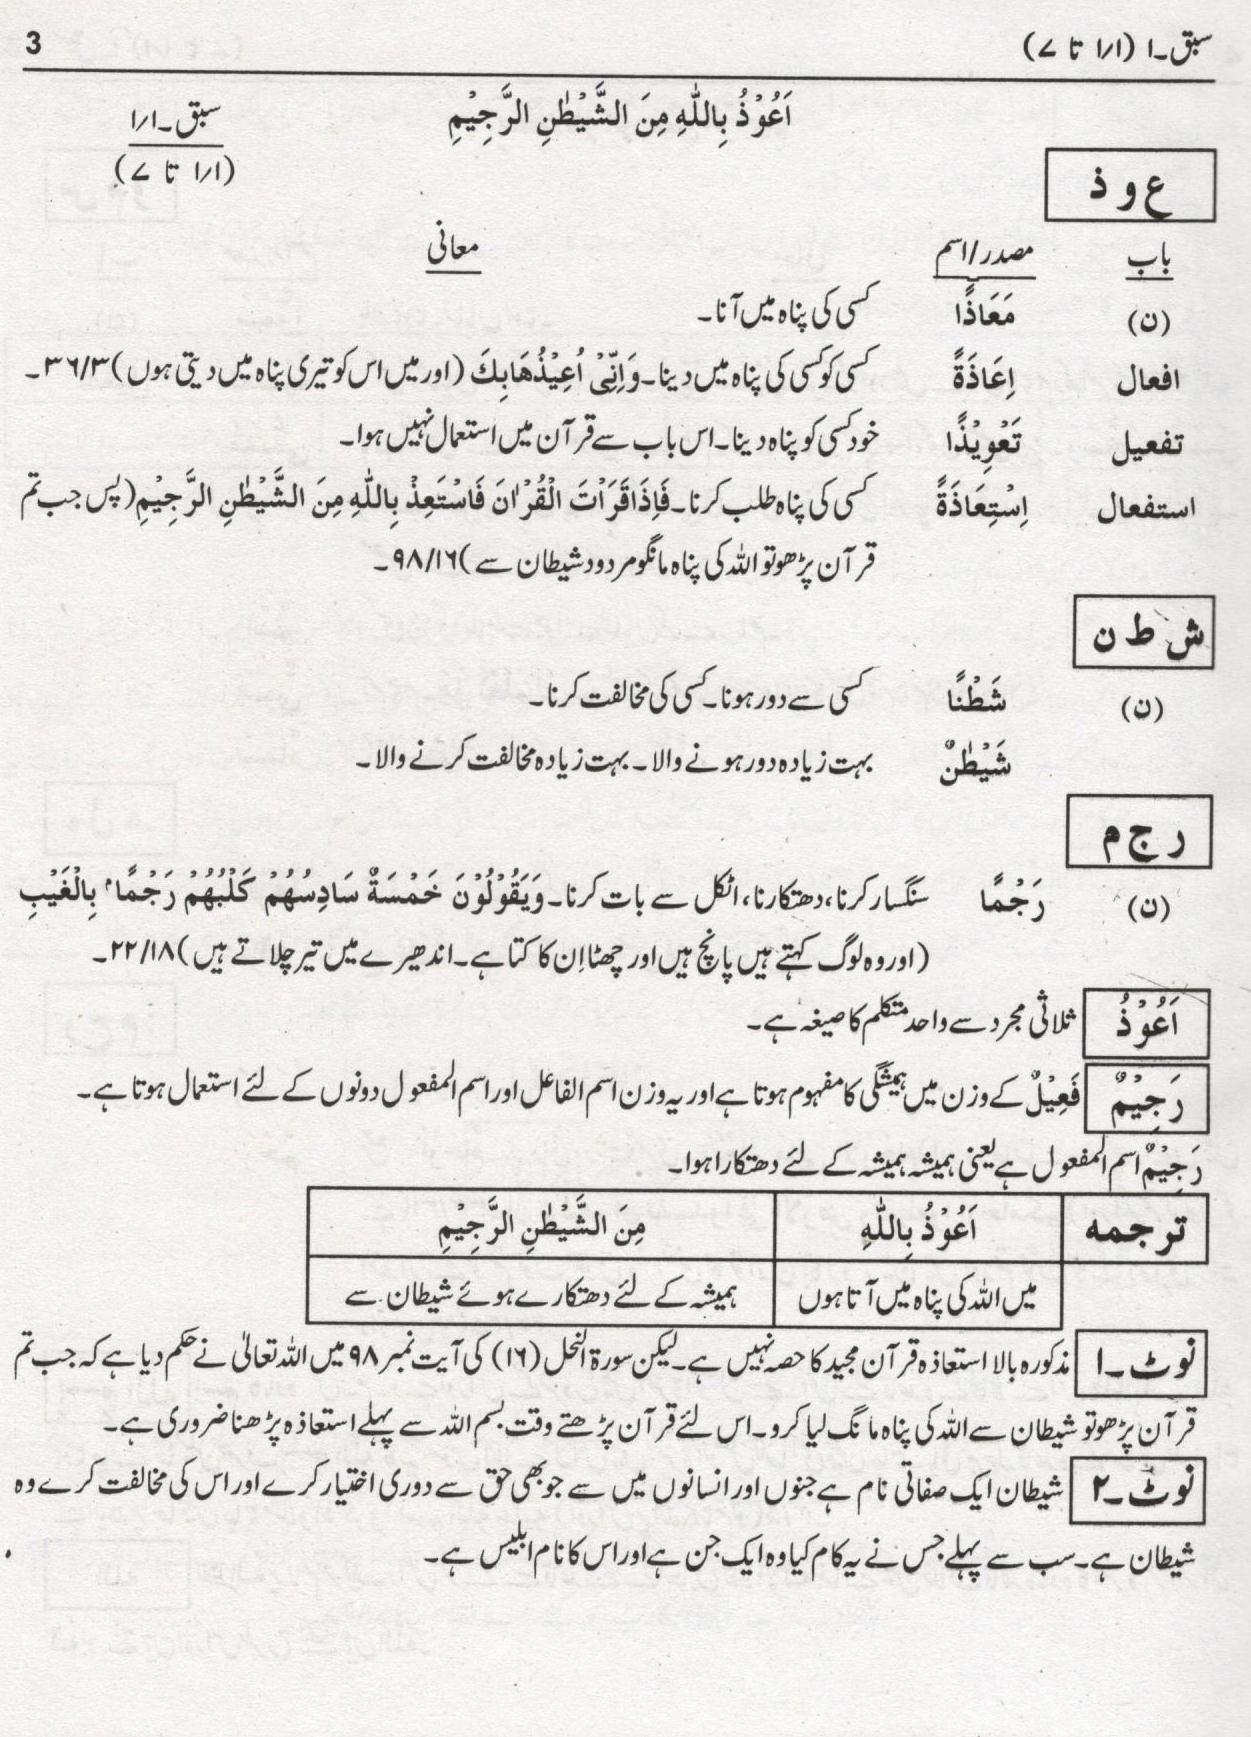 سبق۔۱ (۱/۱ تا ۷) 3
اَعُوْذُ بِاللّٰهِ مِنَ الشَّيْطٰنِ الرَّجِيْمِ
سبق۔۱/۱
(۱/۱ تا ۷)
ع و ذ
باب مصدر/اسم معانی
(ن) مَعَاذًا کسی کی پناہ میں آنا۔
افعال اِعَاذَةً کسی کو کسی کی پناہ میں دینا۔ وَاِنِّیْ اُعِيْذُهَا بِكَ (اور میں اس کو تیری پناہ میں دیتی ہوں) ۳۶/۳۔
تفعیل تَعْوِيْذًا خود کسی کو پناہ دینا۔ اس باب سے قرآن میں استعمال نہیں ہوا۔
استفعال اِسْتِعَاذَةً کسی کی پناہ طلب کرنا۔ فَاِذَا قَرَاْتَ الْقُرْاٰنَ فَاسْتَعِذْ بِاللّٰهِ مِنَ الشَّيْطٰنِ الرَّجِيْمِ (پس جب تم
قرآن پڑھو تو اللہ کی پناہ مانگو مردود شیطان سے) ۹۸/۱۶۔
ش ط ن
(ن) شَطْنًا کسی سے دور ہونا۔ کسی کی مخالفت کرنا۔
شَيْطٰنٌ بہت زیادہ دور ہونے والا۔ بہت زیادہ مخالفت کرنے والا۔
ر ج م
(ن) رَجْمًا سنگسار کرنا، دھتکارنا، اٹکل سے بات کرنا۔ وَيَقُوْلُوْنَ خَمْسَةٌ سَادِسُهُمْ كَلْبُهُمْ رَجْمًاۢ بِالْغَيْبِ
(اور وہ لوگ کہتے ہیں پانچ ہیں اور چھٹا اِن کا کتا ہے۔ اندھیرے میں تیر چلاتے ہیں) ۲۲/۱۸۔
اَعُوْذُ ثلاثی مجرد سے واحد متکلم کا صیغہ ہے۔
رَجِيْمٌ فَعِيْلٌ کے وزن میں ہمیشگی کا مفہوم ہوتا ہے اور یہ وزن اسم الفاعل اور اسم المفعول دونوں کے لئے استعمال ہوتا ہے۔
رَجِيْمٌ اسم المفعول ہے یعنی ہمیشہ ہمیشہ کے لئے دھتکارا ہوا۔
ترجمہ اَعُوْذُ بِاللّٰهِ مِنَ الشَّيْطٰنِ الرَّجِيْمِ
میں اللہ کی پناہ میں آتا ہوں ہمیشہ کے لئے دھتکارے ہوئے شیطان سے
نوٹ۔۱ مذکورہ بالا استعاذہ قرآن مجید کا حصہ نہیں ہے۔ لیکن سورۃ النحل (۱۶) کی آیت نمبر ۹۸ میں اللہ تعالیٰ نے حکم دیا ہے کہ جب تم
قرآن پڑھو تو شیطان سے اللہ کی پناہ مانگ لیا کرو۔ اس لئے قرآن پڑھتے وقت بسم اللہ سے پہلے استعاذہ پڑھنا ضروری ہے۔
نوٹ۔۲ شیطان ایک صفاتی نام ہے جنوں اور انسانوں میں سے جو بھی حق سے دوری اختیار کرے اور اس کی مخالفت کرے وہ
شیطان ہے۔ سب سے پہلے جس نے یہ کام کیا وہ ایک جن ہے اور اس کا نام ابلیس ہے۔